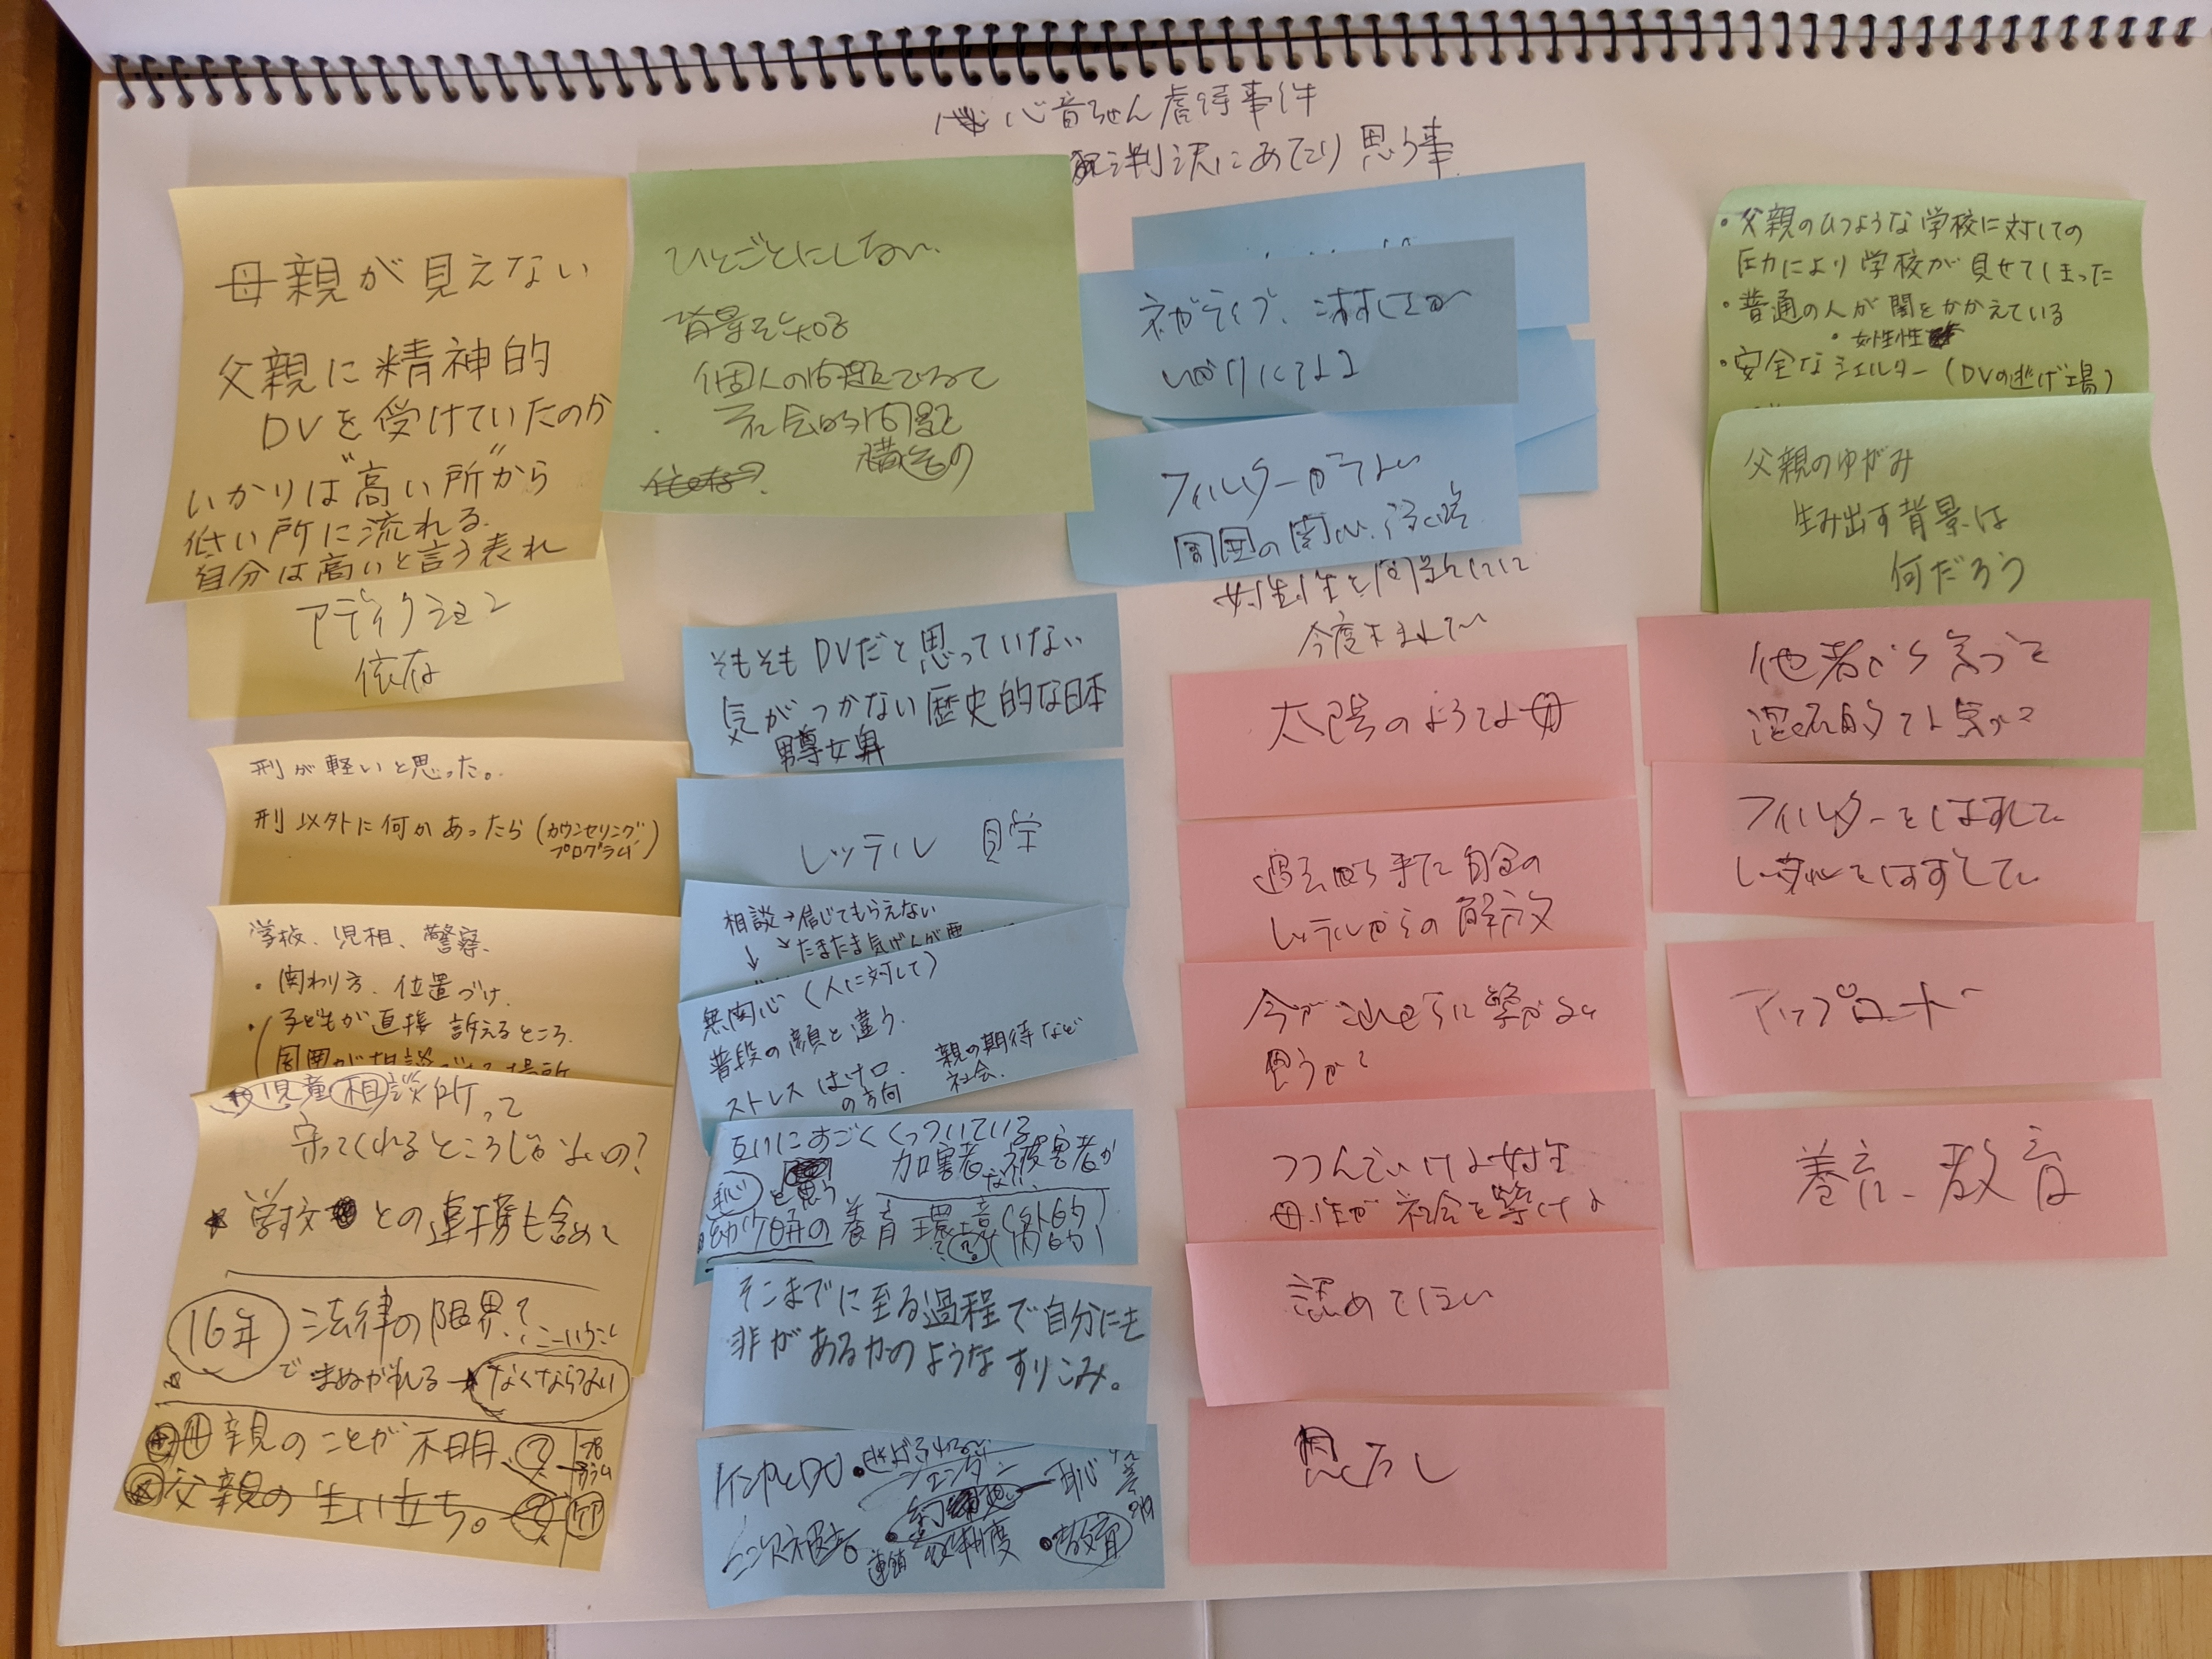 心音ちゃん虐待事件
判決にあたり思う事
母親が見えない
父親に精神的
DVを受けていたのか
いかりは“高い所”から
低い所に流れる
自分は高いと言う表れ
アディクション
依存
刑が軽いと思った。
刑以外に何かあったら(カウンセリング
プログラム)
学校、児相、警察、
・関わり方、位置づけ、
・子どもが直接訴えるところ
周囲が相談
児童相談所って
守ってくれるところじゃないの?
学校との連携も含めて
16年
法律の限界?
こういうこと
でまぬがれる
なくならない
母親のことが不明?
父親の生い立ち。
ひとごとにしない
背景を知る
個人の問題でなくて
社会的問題と
構造的
そもそもDVだと思っていない
気がつかない歴史的な日本
男尊女卑
レッテル
相談→信じてもらえない
→たまたま気げんが悪
無関心(人に対して)
普段の顔と違う。
ストレスはけ口
の方向
親の期待など
社会
互いにすごくくっついている
加害者、被害者が
ない
恥と思う
幼少期の養育環境(外的
内的)
そこまでに至る過程で自分にも
非があるかのようなすりこみ。
ジェンダー
恥
二次被害
連鎖
制度
・教育
ネガティブ、
いかりになる
フィルターがない
周囲の関心
女性性を
今度
太陽のような母
過去から来た自分の
レッテルからの解放
今がこれからに繋がると
思うが?
つつんでいける女性
母性が社会を築ける
認めてほしい
思
・父親のひつような学校に対しての
圧力により学校が見せてしまった
・普通の人が闇をかかえている
・女性性
・安全なシェルター(DVの逃げ場)
父親のゆがみ
生み出す背景は
何だろう
他者から
フィルターをはずして
レッテルをはずして
アップロード
養育、教育